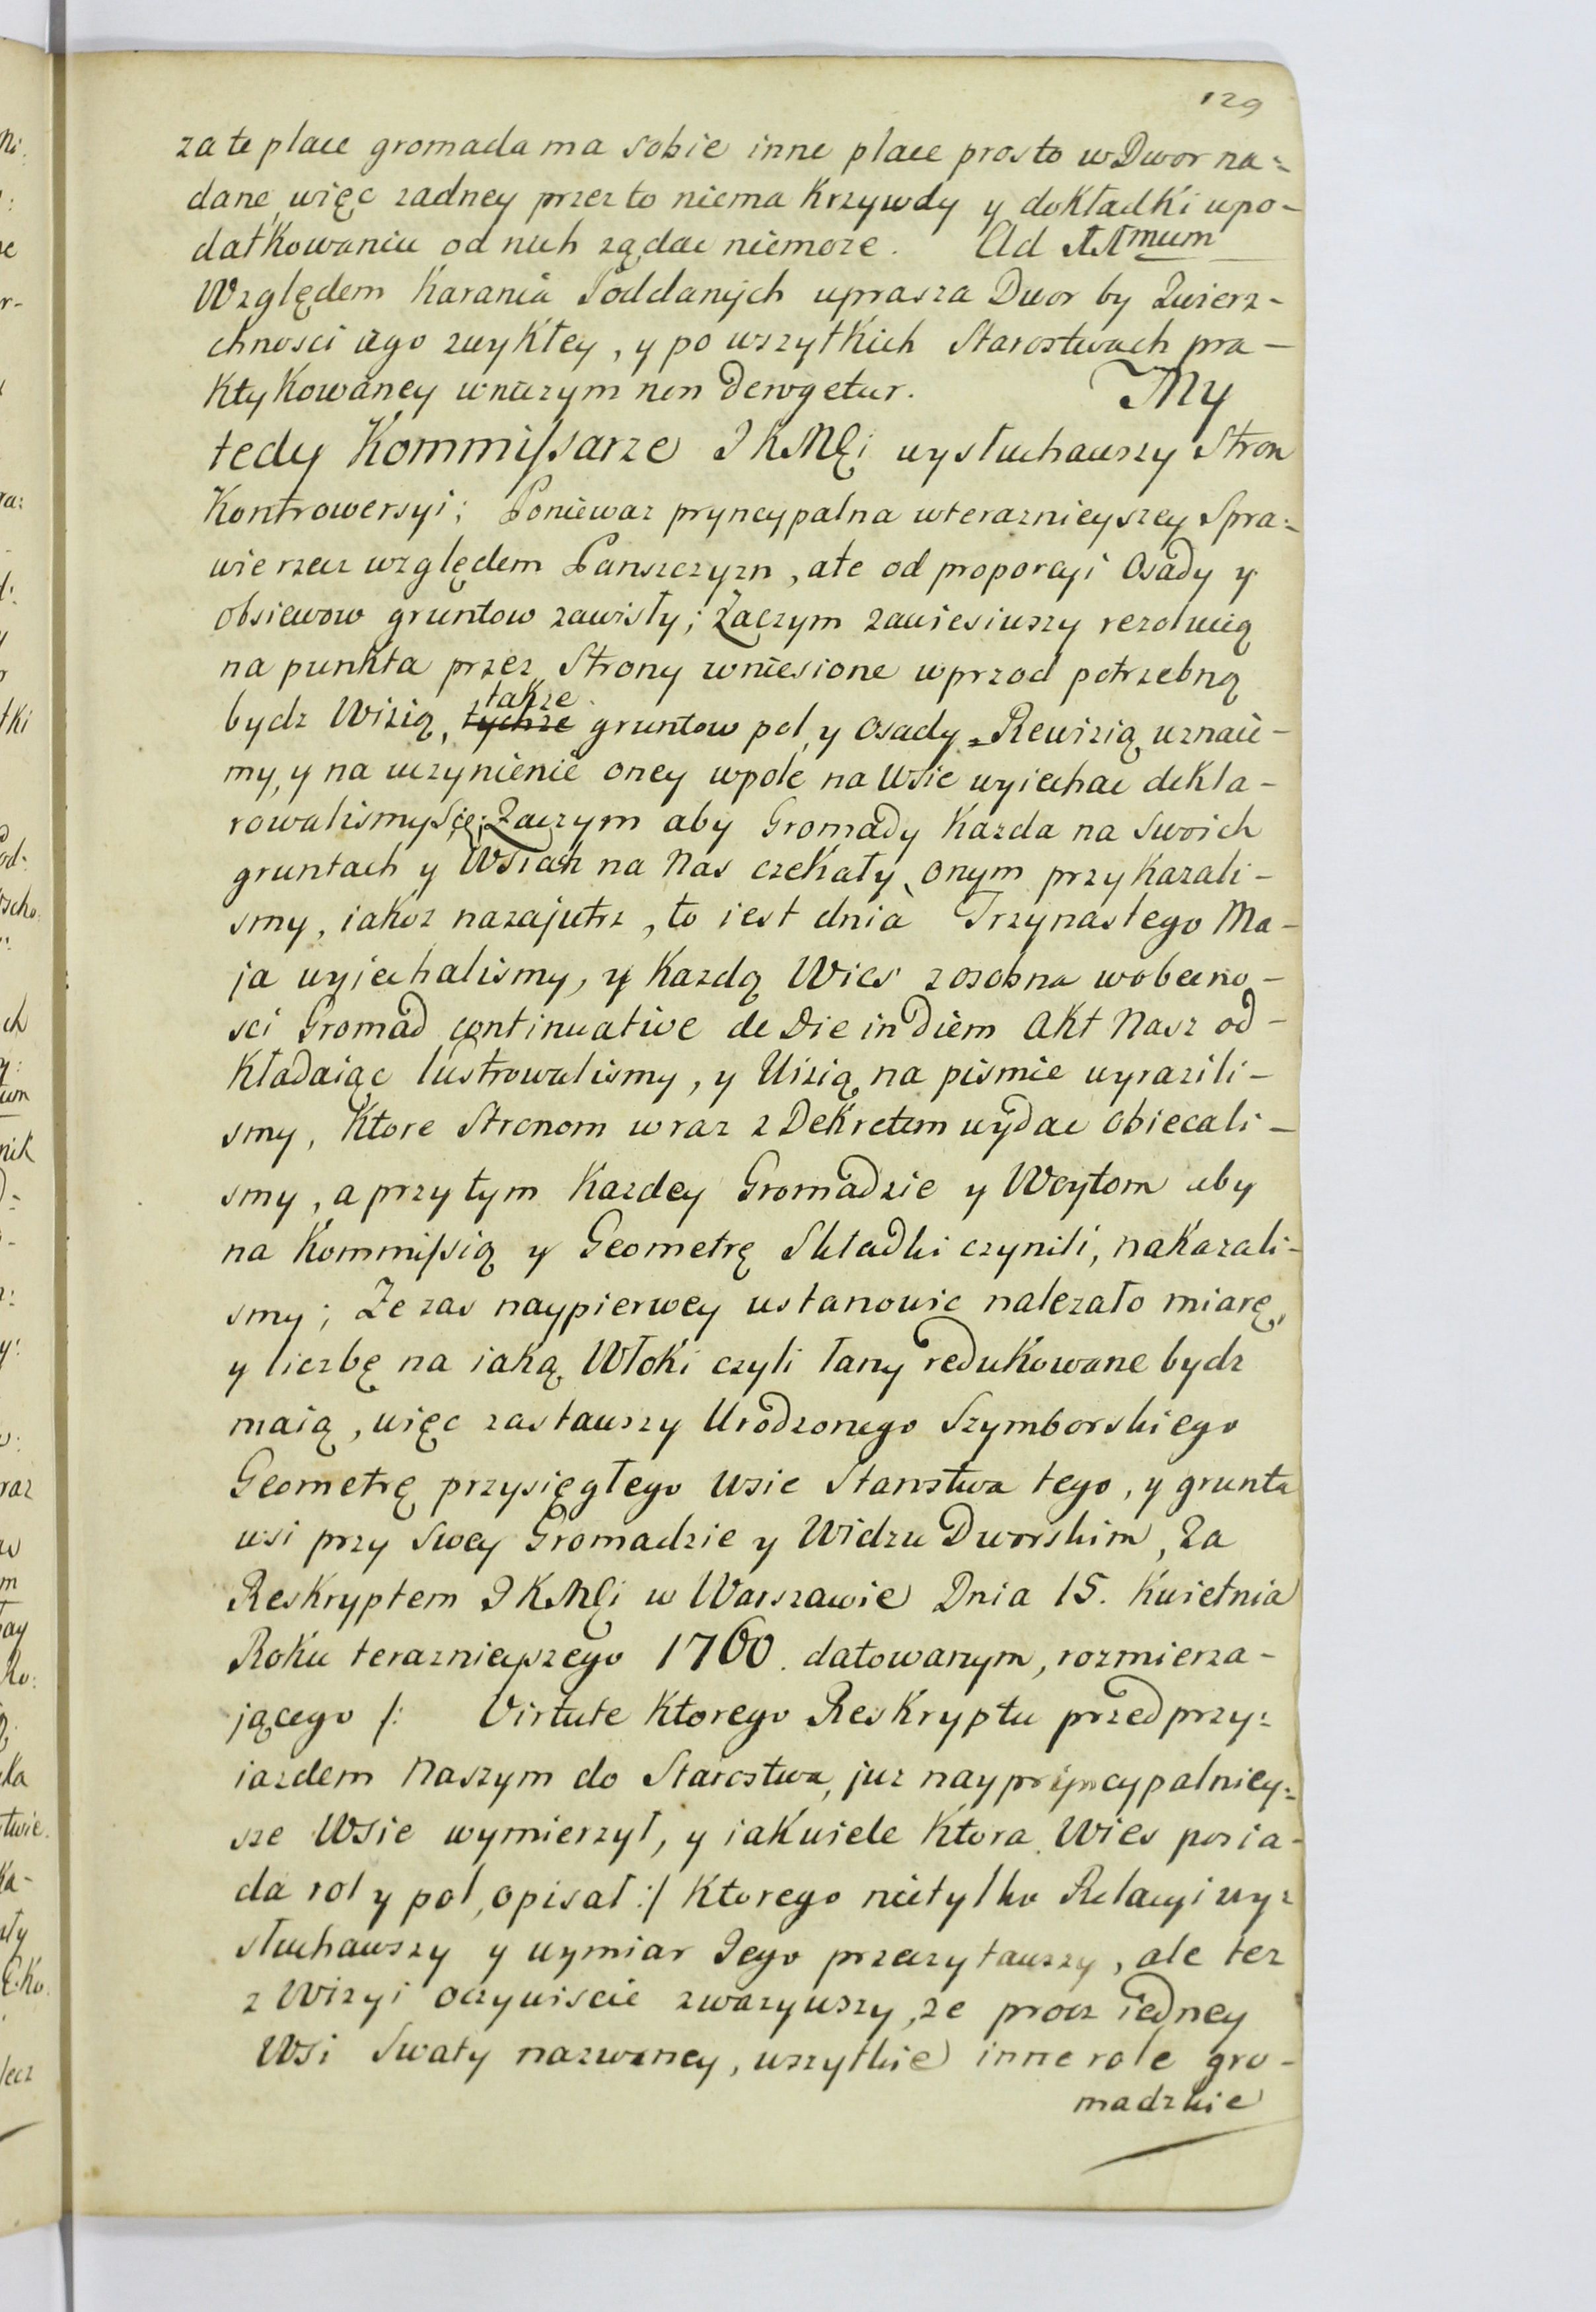 129
za te place gromada ma sobie inne place prosto w Dwor na=
dane, więc zadney przez to niema Krzywdy y dokładki w po-
datkowaniu od nich ządac niemoze. Ad mum
Względem Karania Poddanych uprasza Dwor by Zwierz-
chnosci iego zwykłey, y po wszytkich Starostwach pra-
ktykowaney w niczym non Derogetur. My
tedy Kommissarze JKMCi wysłuchawszy Stron
Kontrowersyi; Poniewaz pryncypalna w terazniejszey Spra=
wie rzecz względem Panszczyzn, ale od proporcyi Osady y
obsiewow gruntow zawisły; Zaczym zawiesiwszy rezolucią
na punkta przez Strony wniesione wprzod potrzebną
bydz Wizią, także
tychze gruntow pol, y Osady = Rewizią uznaie-
my, y na uczynienie oney w pole na Wsie wyiechac dekla-
rowalismy Się; Zaczym aby Gromady Kazda na Swoich
gruntach y Wsiach na Nas czekały, Onym przykazali-
smy, iakoz nazajutrz, to iest dnia Trzynastego Ma-
ja wyiechalismy, y Kazdą Wies zosobna w obecno-
sci Gromad continuative de Die in Diem Akt Nasz od-
Kładaiąc lustrowalismy, y Wizią na pismie wyrazili-
smy, Ktore Stronom wraz z Dekretem wydac Obiecali-
smy, a przy tym Kazdey Gromadzie y Woytom aby
na Kommissią y Geometrę Składki czynili, nakazali-
smy; Ze zas naypierwey ustanowic nalezało miarę,
y liczbę na iaką Włoki czyli łany redukowane bydz
maią, więc zastawszy Urodzonego Szymborskiego
Geometrę przysięgłego Wsie Starostwa tego, y grunta
wsi przy Swey Gromadzie y Widzu Dworskim, Za
Reskryptem JKMCi w Warszawie Dnia 15. Kwietnia
Roku terazniejszego 1760. datowanym, rozmierza-
jącego /: Virtute Ktorego Reskryptu przed przy=
iazdem Naszym do Starostwa, juz naypryncypalniey=
sze Wsie wymierzył, y iak wiele Ktora Wies posia-
da rol y pol, opisał :/ Ktorego nietylko Relacyi wy=
słuchawszy y wymiar Jego przeczytawszy, ale tez
z Wizyi oczywiscie zwazywszy, ze procz iedney
Wsi Swaty nazwaney, wszytkie inne role gro-
madzkie